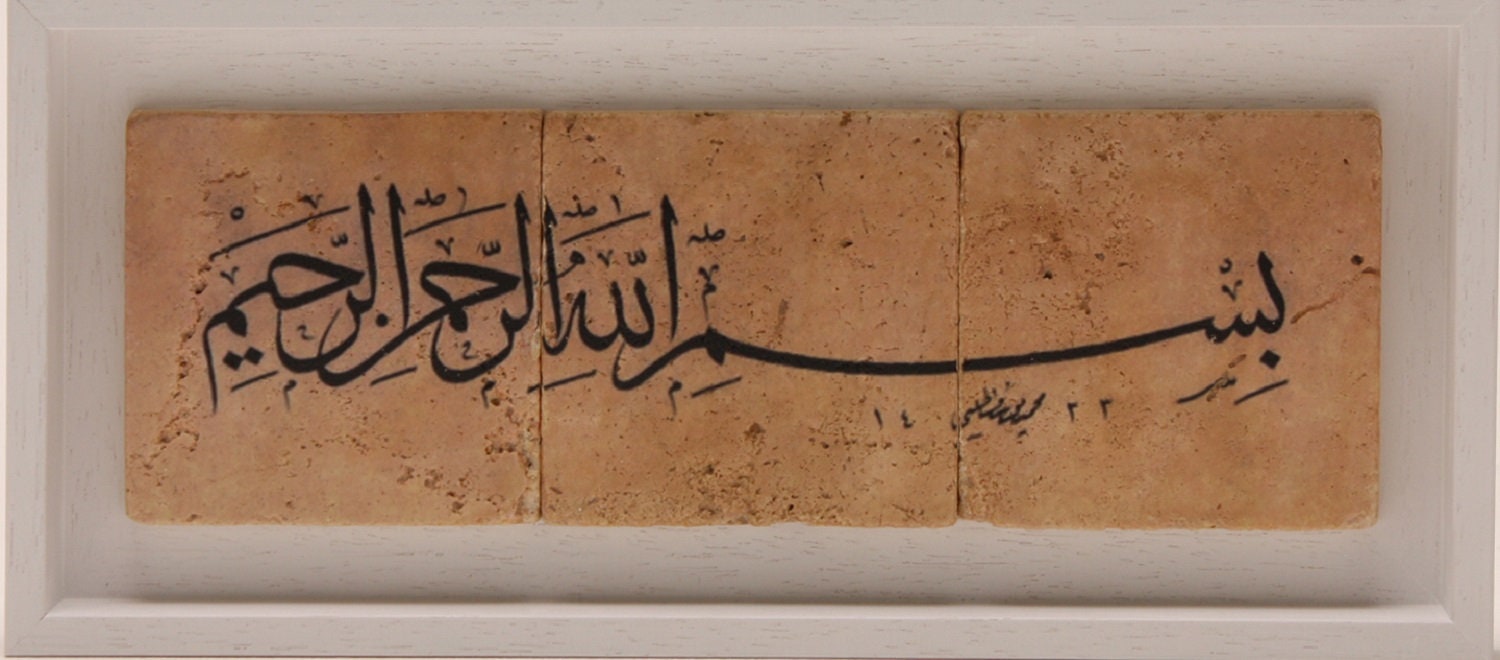 بِسْمِ اللهِ الرَّحْمٰنِ الرَّحِيْمِ
١٤ ٢٢